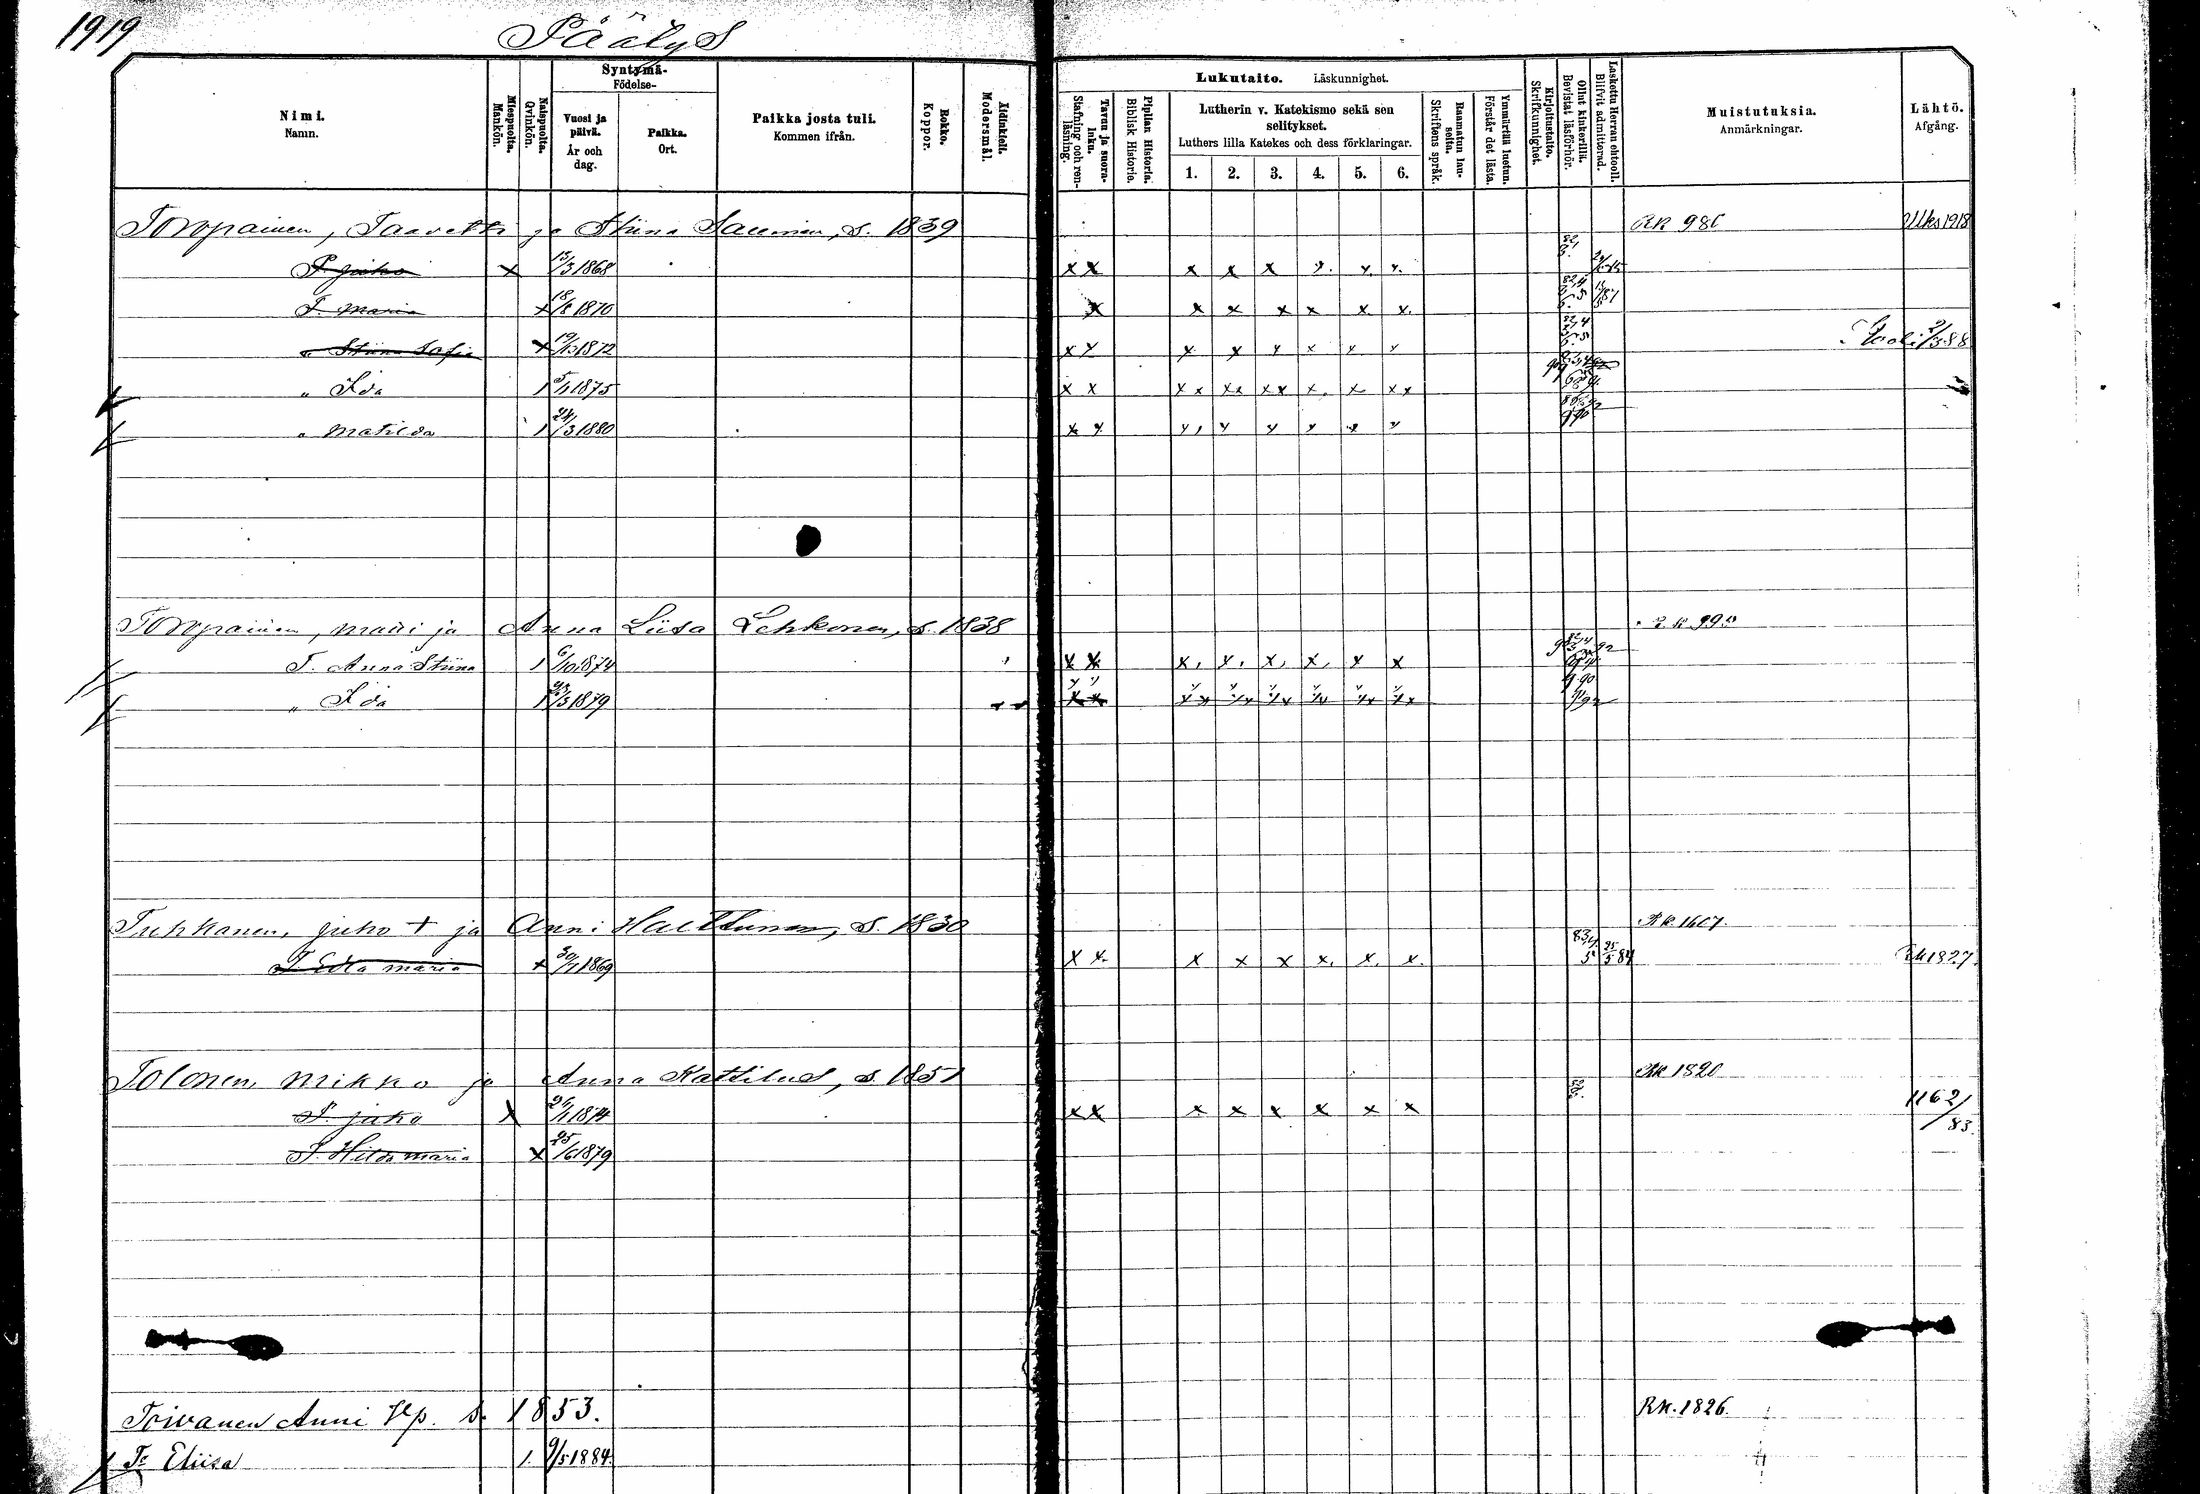 1919
Päälys
Nimi.
Namn.
Miespuolta.
Mankön.
Naispuolta.
Qvinkön.
Syntymä-
Födelse-
Vuosi ja
päivä.
År och
dag.
Paikka.
Ort.
Paikka josta tuli.
Kommen ifrån.
Rokko.
Koppor.
Äidinkieli.
Modersmål.
Lukutaito. Läskunnighet.
Tavuu ja suora-
luku.
Stafning och ren-
läsning.
Piplian Historia.
Biblisk Historie.
Lutherin v. Katekismo sekä sen
selitykset.
Luthers lilla Katekes och dess förklaringar.
1. 2. 3. 4. 5. 6.
Raamatun lau-
seita.
Skriftens språk.
Ymmärtää luetun.
Förstår det lästa.
Kirjoitustaito.
Skrifkunnighet.
Ollut kinkerillä.
Bevistat läsförhör.
Laskettu Herran ehtooll.
Blifvit admitterad.
Muistutuksia.
Anmärkningar.
Lähtö.
Afgång.
Toropainen, Taavetti ja Stiina Sauminen, s. 1839 RK 986 Ulks 1918
T. Juho x 13/3 1868 x x x x x x x x
T. Maria x 18/8 1870 x x x x x x x
" Stiina Sofia x 19/12 1872 x x x x x x x x Kuoli 2/3 88
" Ida 1 5/11 1875 x x x x x x x x x x x x
" Matilda 1 24/3 1880 x x x x x x x x
Toropainen, Matti ja Anna Liisa Lehkonen, s. 1838 RK 990
T. Anna Stiina 1 6/10 1874 x x x x x x x x
" Ida 1 23/3 1879
Tuhkanen, Juho + ja Anni Halttunen, s. 1830 RK. 1607.
T. Edla Maria x 30/1 1869 x x x x x x x x 83,4 5 25/5 84 RK 1827
Tolonen, Mikko ja Anna Kattilus, s. 1851 RK 1820
T. Juho x 24/11 1874 x x x x x x x x 1162/83.
T. Hilda Maria x 25/6 1879
Toivanen Anni Vp. s. 1853. RK. 1826.
T. Eliisa 1. 9/5 1884